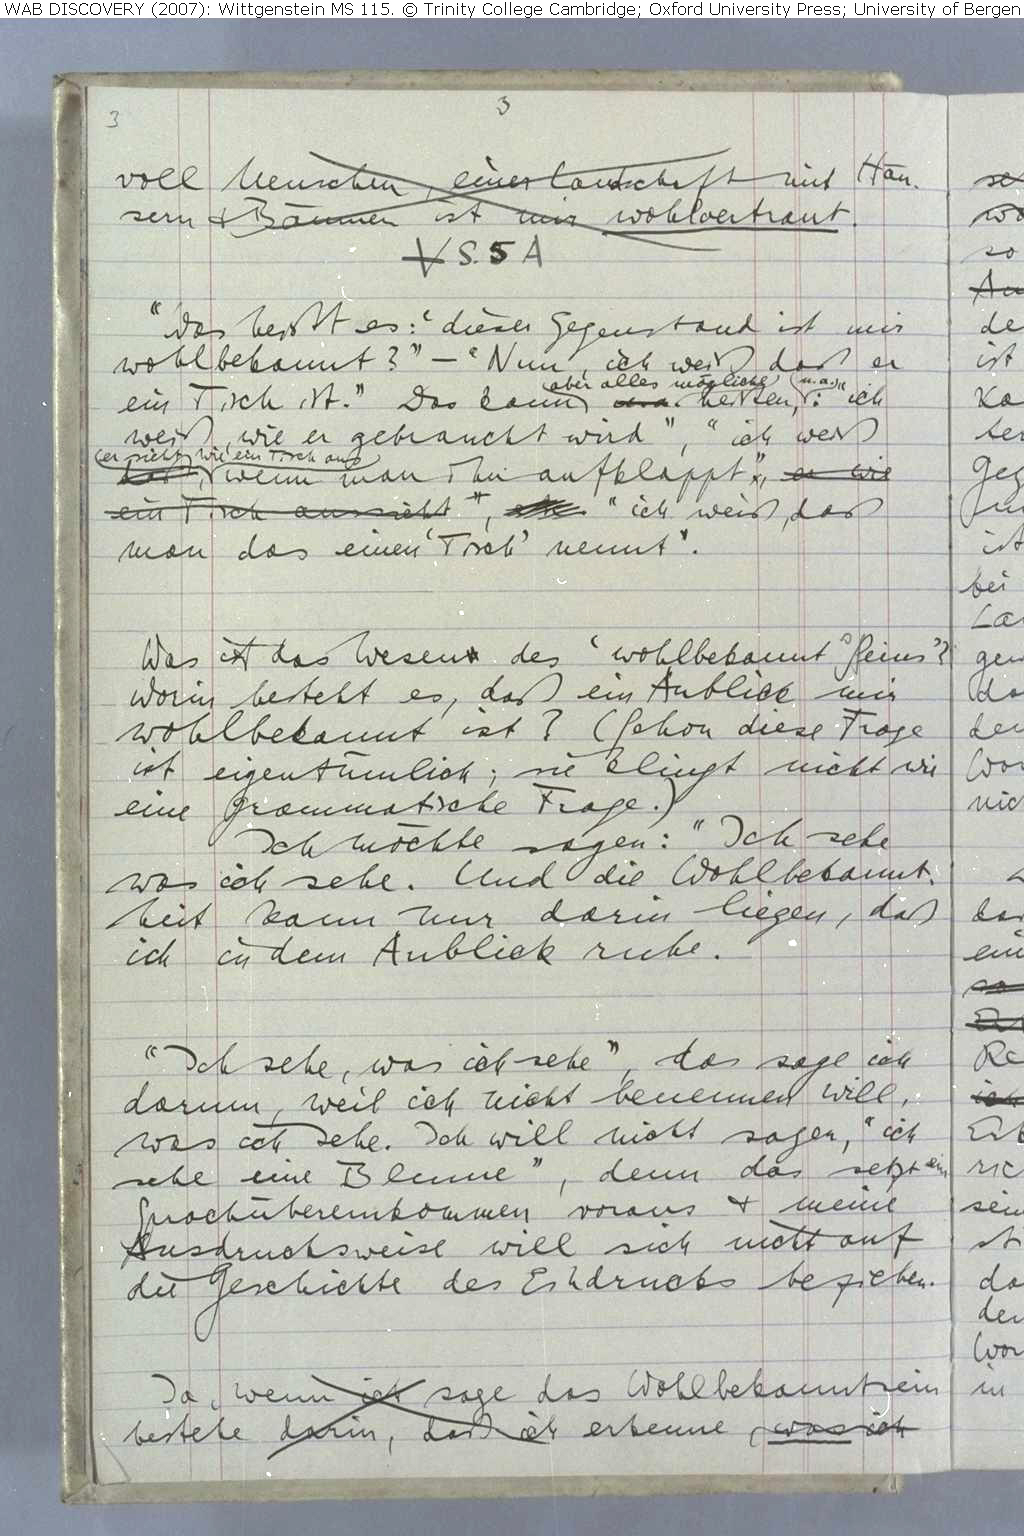 WAB DISCOVERY (2007): Wittgenstein MS 115. © Trinity College Cambridge; Oxford University Press; University of Bergen
3
3
voll Menschen, einer Landschaft mit Häu-
sern & Bäumen ist mir wohlvertraut.
V S. 5 A
“Was heißt es: ‘dieser Gegenstand ist mir
wohlbekannt’?” – “Nun, ich weiß daß er
ein Tisch ist.” Das kann aber alles mögliche heißen, (u.a.): “ich
weiß, wie er gebraucht wird”, “ich weiß
er sieht wie ein Tisch aus
wenn man ihn aufklappt”, er wie
ein Tisch aussieht”, “ich weiß, daß
man das einen ‘Tisch’ nennt”.
Was ist das Wesen des ‘wohlbekannt Seins’?
Worin besteht es, daß ein Anblick mir
wohlbekannt ist? (Schon diese Frage
ist eigentümlich; sie klingt nicht wie
eine grammatische Frage.)
Ich möchte sagen: “Ich sehe
was ich sehe. Und die Wohlbekannt-
heit kann nur darin liegen, daß
ich in dem Anblick ruhe.
“Ich sehe, was ich sehe”, das sage ich
darum, weil ich nicht benennen will,
was ich sehe. Ich will nicht sagen, “ich
sehe eine Blume”, denn das setzt ein
Sprachübereinkommen voraus & meine
Ausdrucksweise will sich nicht auf
die Geschichte des Eindrucks beziehen.
Ja, wenn ich sage das Wohlbekanntsein
bestehe darin, daß ich erkenne, was ich